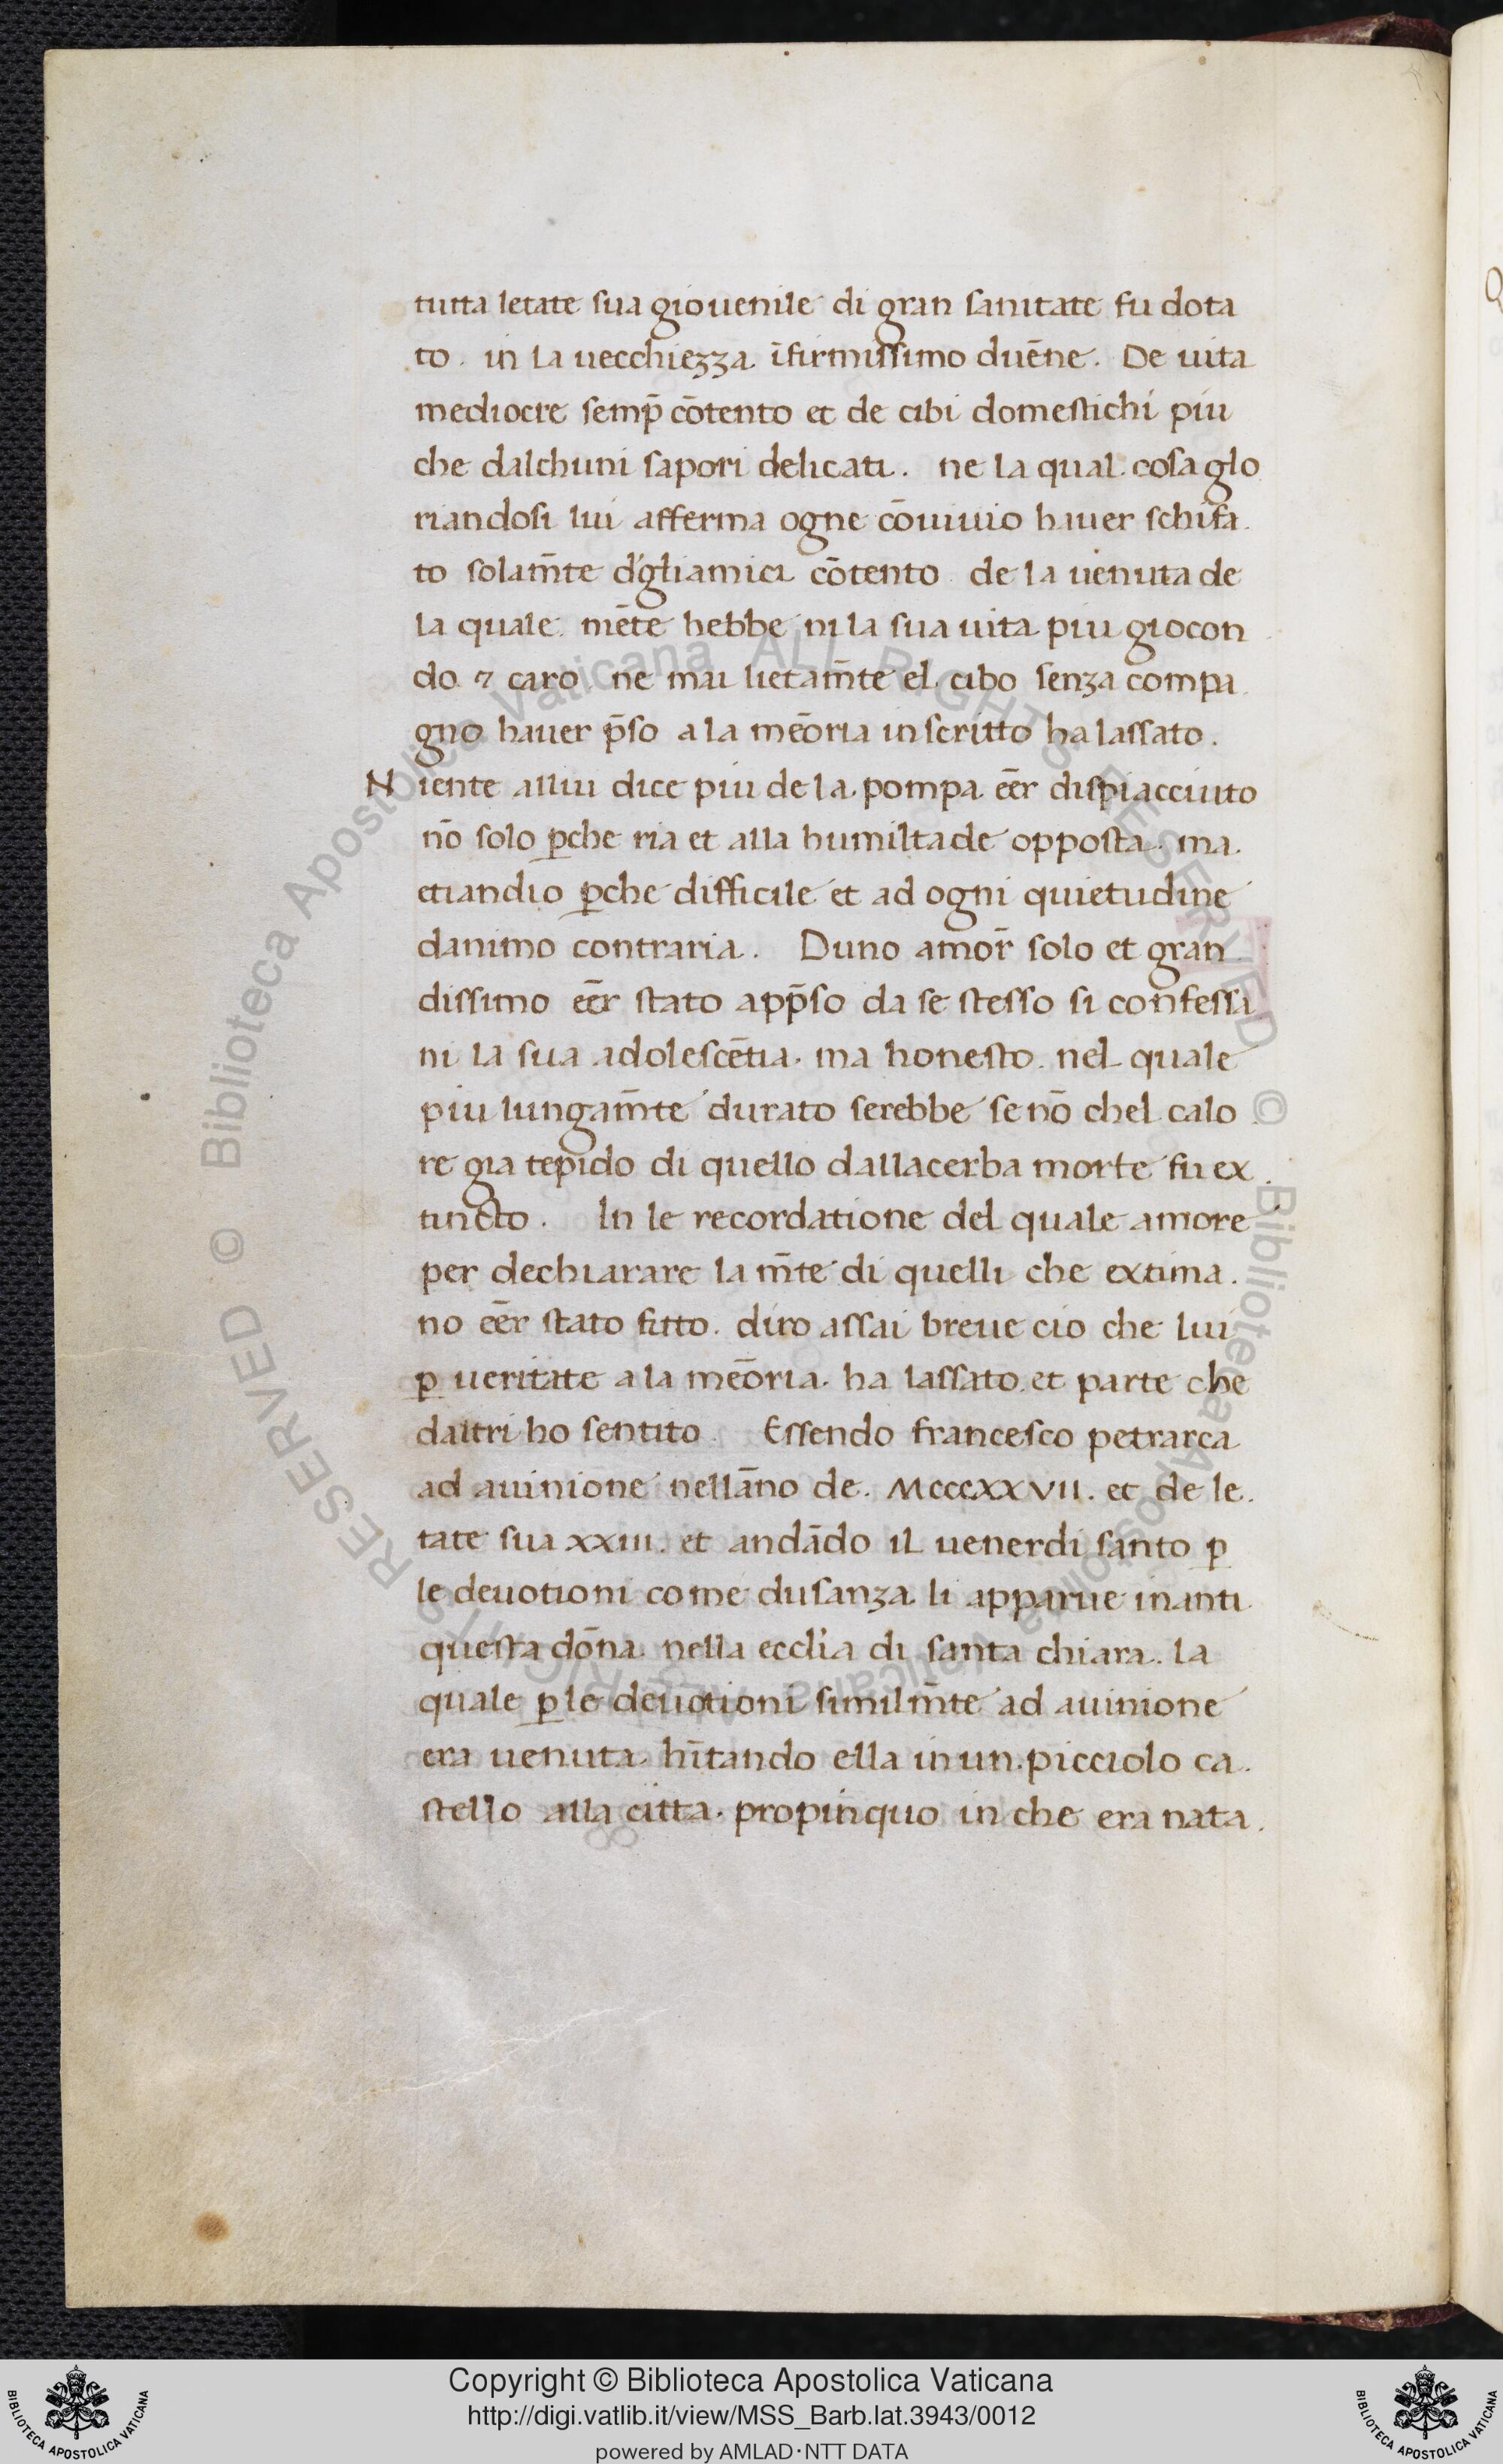 tutta letate sua giouenile di gran sanitate fu dota
to. in la uecchiezza. ĩfirmissimo duẽne. De uita
mediocre semp̄ cõtento et de cibi domestichi piu
che dalchuni sapori delicati. ne la qual. cosa glo
riandosi lui afferma ogne cõuiuio hauer schifa.
to solam̃te d'gliamici cõtento de la uenuta de
la quale. niẽte hebbe ni la sua uita piu giocon
do ⁊ caro. ne mai lietam̃te el. cibo senza compa
gno hauer p̄so a la mẽoria in scritto ha lassato.
Niente allui dice piu de la. pompa eẽr dispiacciuto
nõ solo ꝑche ria et alla humiltade opposta. ma.
etiandio ꝑche difficile et ad ogni quietudine
danimo contraria. Duno amor̃ solo et gran
dissimo eẽr stato app̄so da se stesso si confessa
ni la sua adolescẽtia. ma honesto. nel quale
piu lungam̃te durato serebbe se nõ chel calo
re gia tepido di quello dallacerba morte fu ex.
tincto. In le recordatione del quale amore
per dechiarare la m̃te di quelli che extima.
no eẽr stato fitto. diro assai breue cio che lui
ꝑ ueritate a la mẽoria. ha lassato. et parte che
daltri ho sentito. Essendo francesco petrarca
ad auinione nellãno de. MCCCXXVII. et de le.
tate sua XXIII. et andãdo il uenerdi santo ꝑ
le deuotioni come dusanza li apparue inanti
questa dõna. nella ecclĩa di santa chiara. la
quale ꝑ le deuotioni similm̃te ad auinione
era uenuta. hĩtando ella in un. picciolo ca.
stello alla citta. propinquo in che era nata.
Copyright © Biblioteca Apostolica Vaticana
http://digi.vatlib.it/view/MSS_Barb.lat.3943/0012
powered by AMLAD·NTT DATA